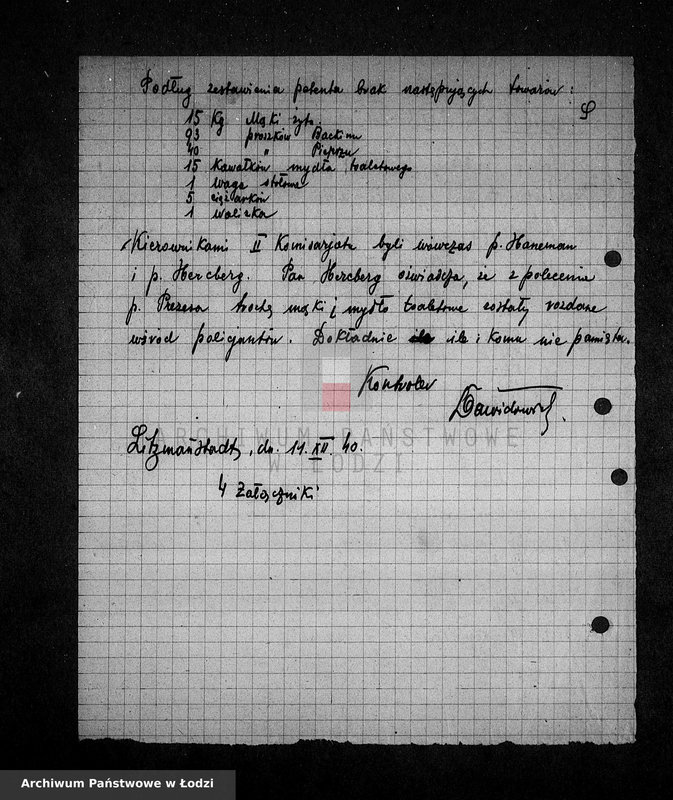 Podług zestawienia petenta brak następujących towarów:
15 Kg Mąki żyt.
93 proszków Backinu
40 " Pieprzu
15 Kawałków mydła toaletowego
1 Waga stołowa
5 ciężarków
1 Walizka
Kierownikami II Komisarjatu byli wówczas p. Haneman
i p. Hercberg. Pan Hercberg oświadcza, że z polecenia
p. Prezesa trochę mąki i mydło toaletowe zostały rozdane
wśród policjantów. Dokładnie ile i komu nie pamięta.
Kontroler
Dawidowicz.
Litzmannstadt, dn. 11.XII.40.
4 Załączniki
ARCHIWUM PAŃSTWOWE
W ŁODZI
Archiwum Państwowe w Łodzi